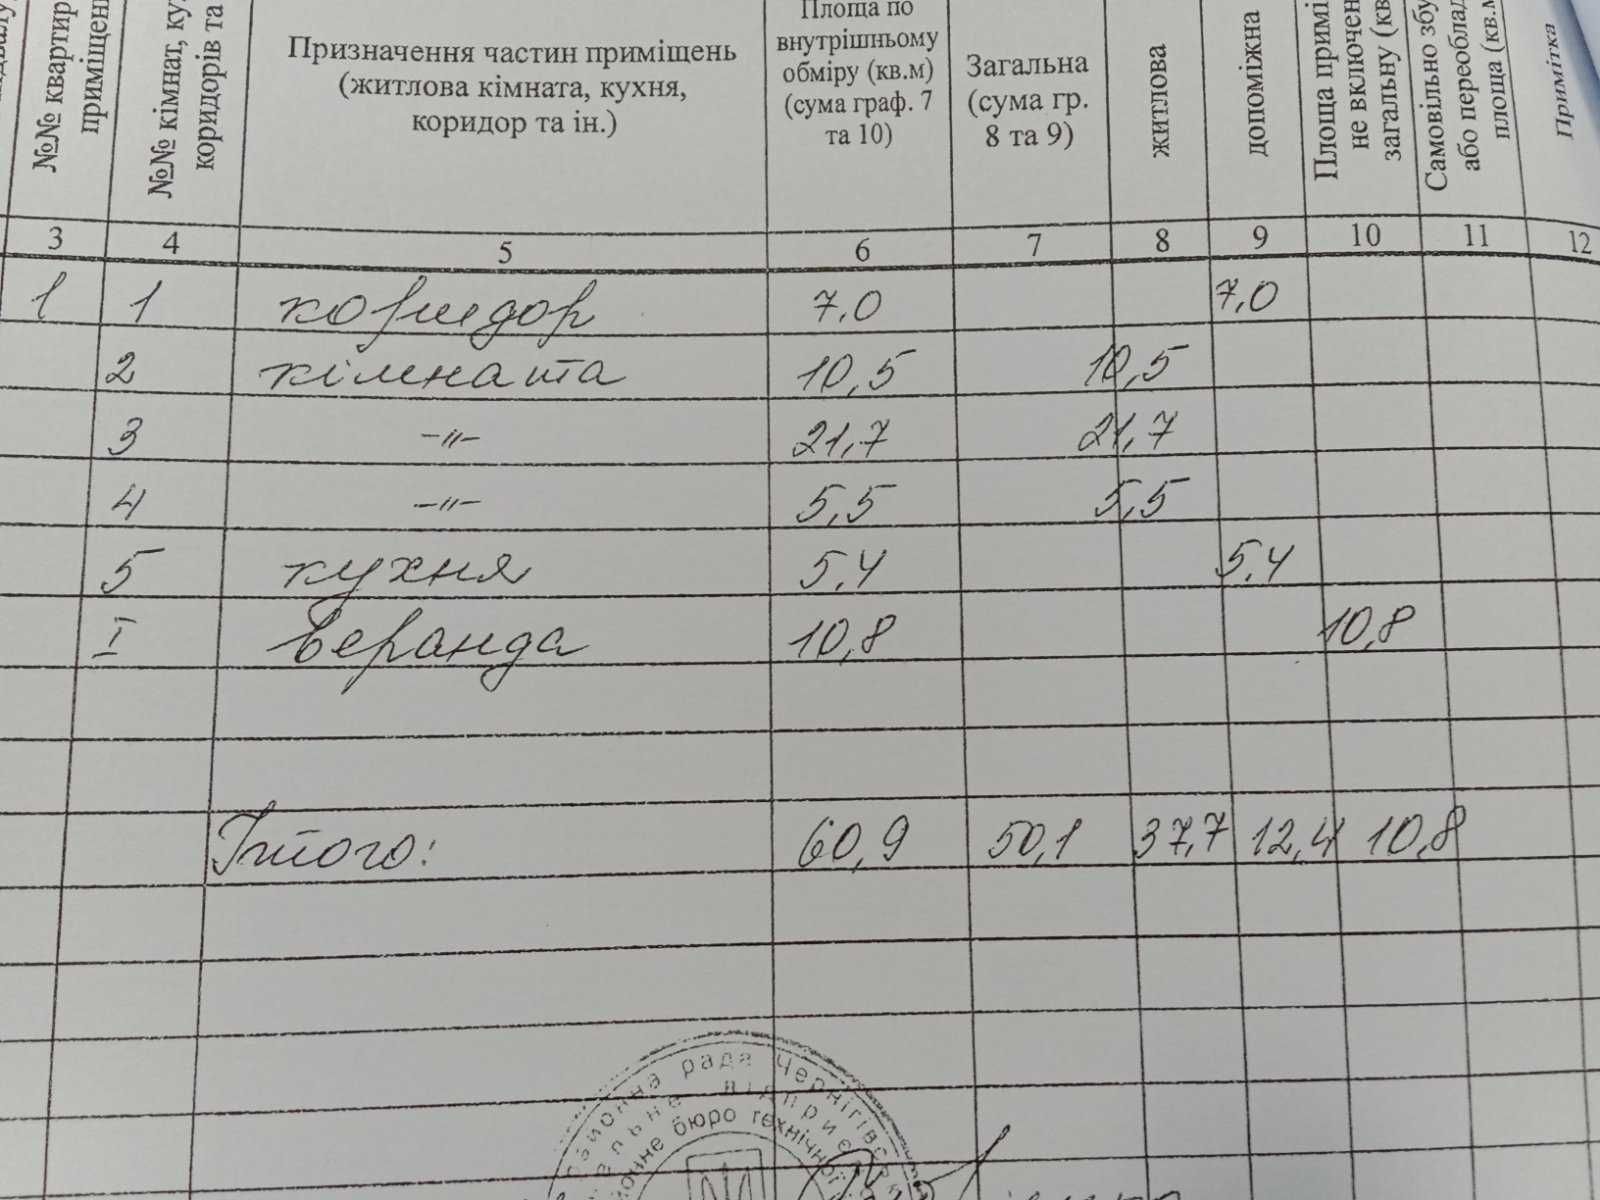 №№ квартир
приміщень
№№ кімнат, ку
коридорів та
Призначення частин приміщень
(житлова кімната, кухня,
коридор та ін.)
Площа по
внутрішньому
обміру (кв.м)
(сума граф. 7
та 10)
Загальна
(сума гр.
8 та 9)
житлова
допоміжна
Площа примі
не включен
загальну (кв
Самовільно збу
або переоблад
площа (кв.м
Примітка
3 4 5 6 7 8 9 10 11 12
1 1 коридор 7,0 7,0
2 кімната 10,5 10,5
3 -〃- 21,7 21,7
4 -〃- 5,5 5,5
5 кухня 5,4 5,4
I веранда 10,8 10,8
Ітого: 60,9 50,1 37,7 12,4 10,8
районна рада Чернігівсь
бюро технічної